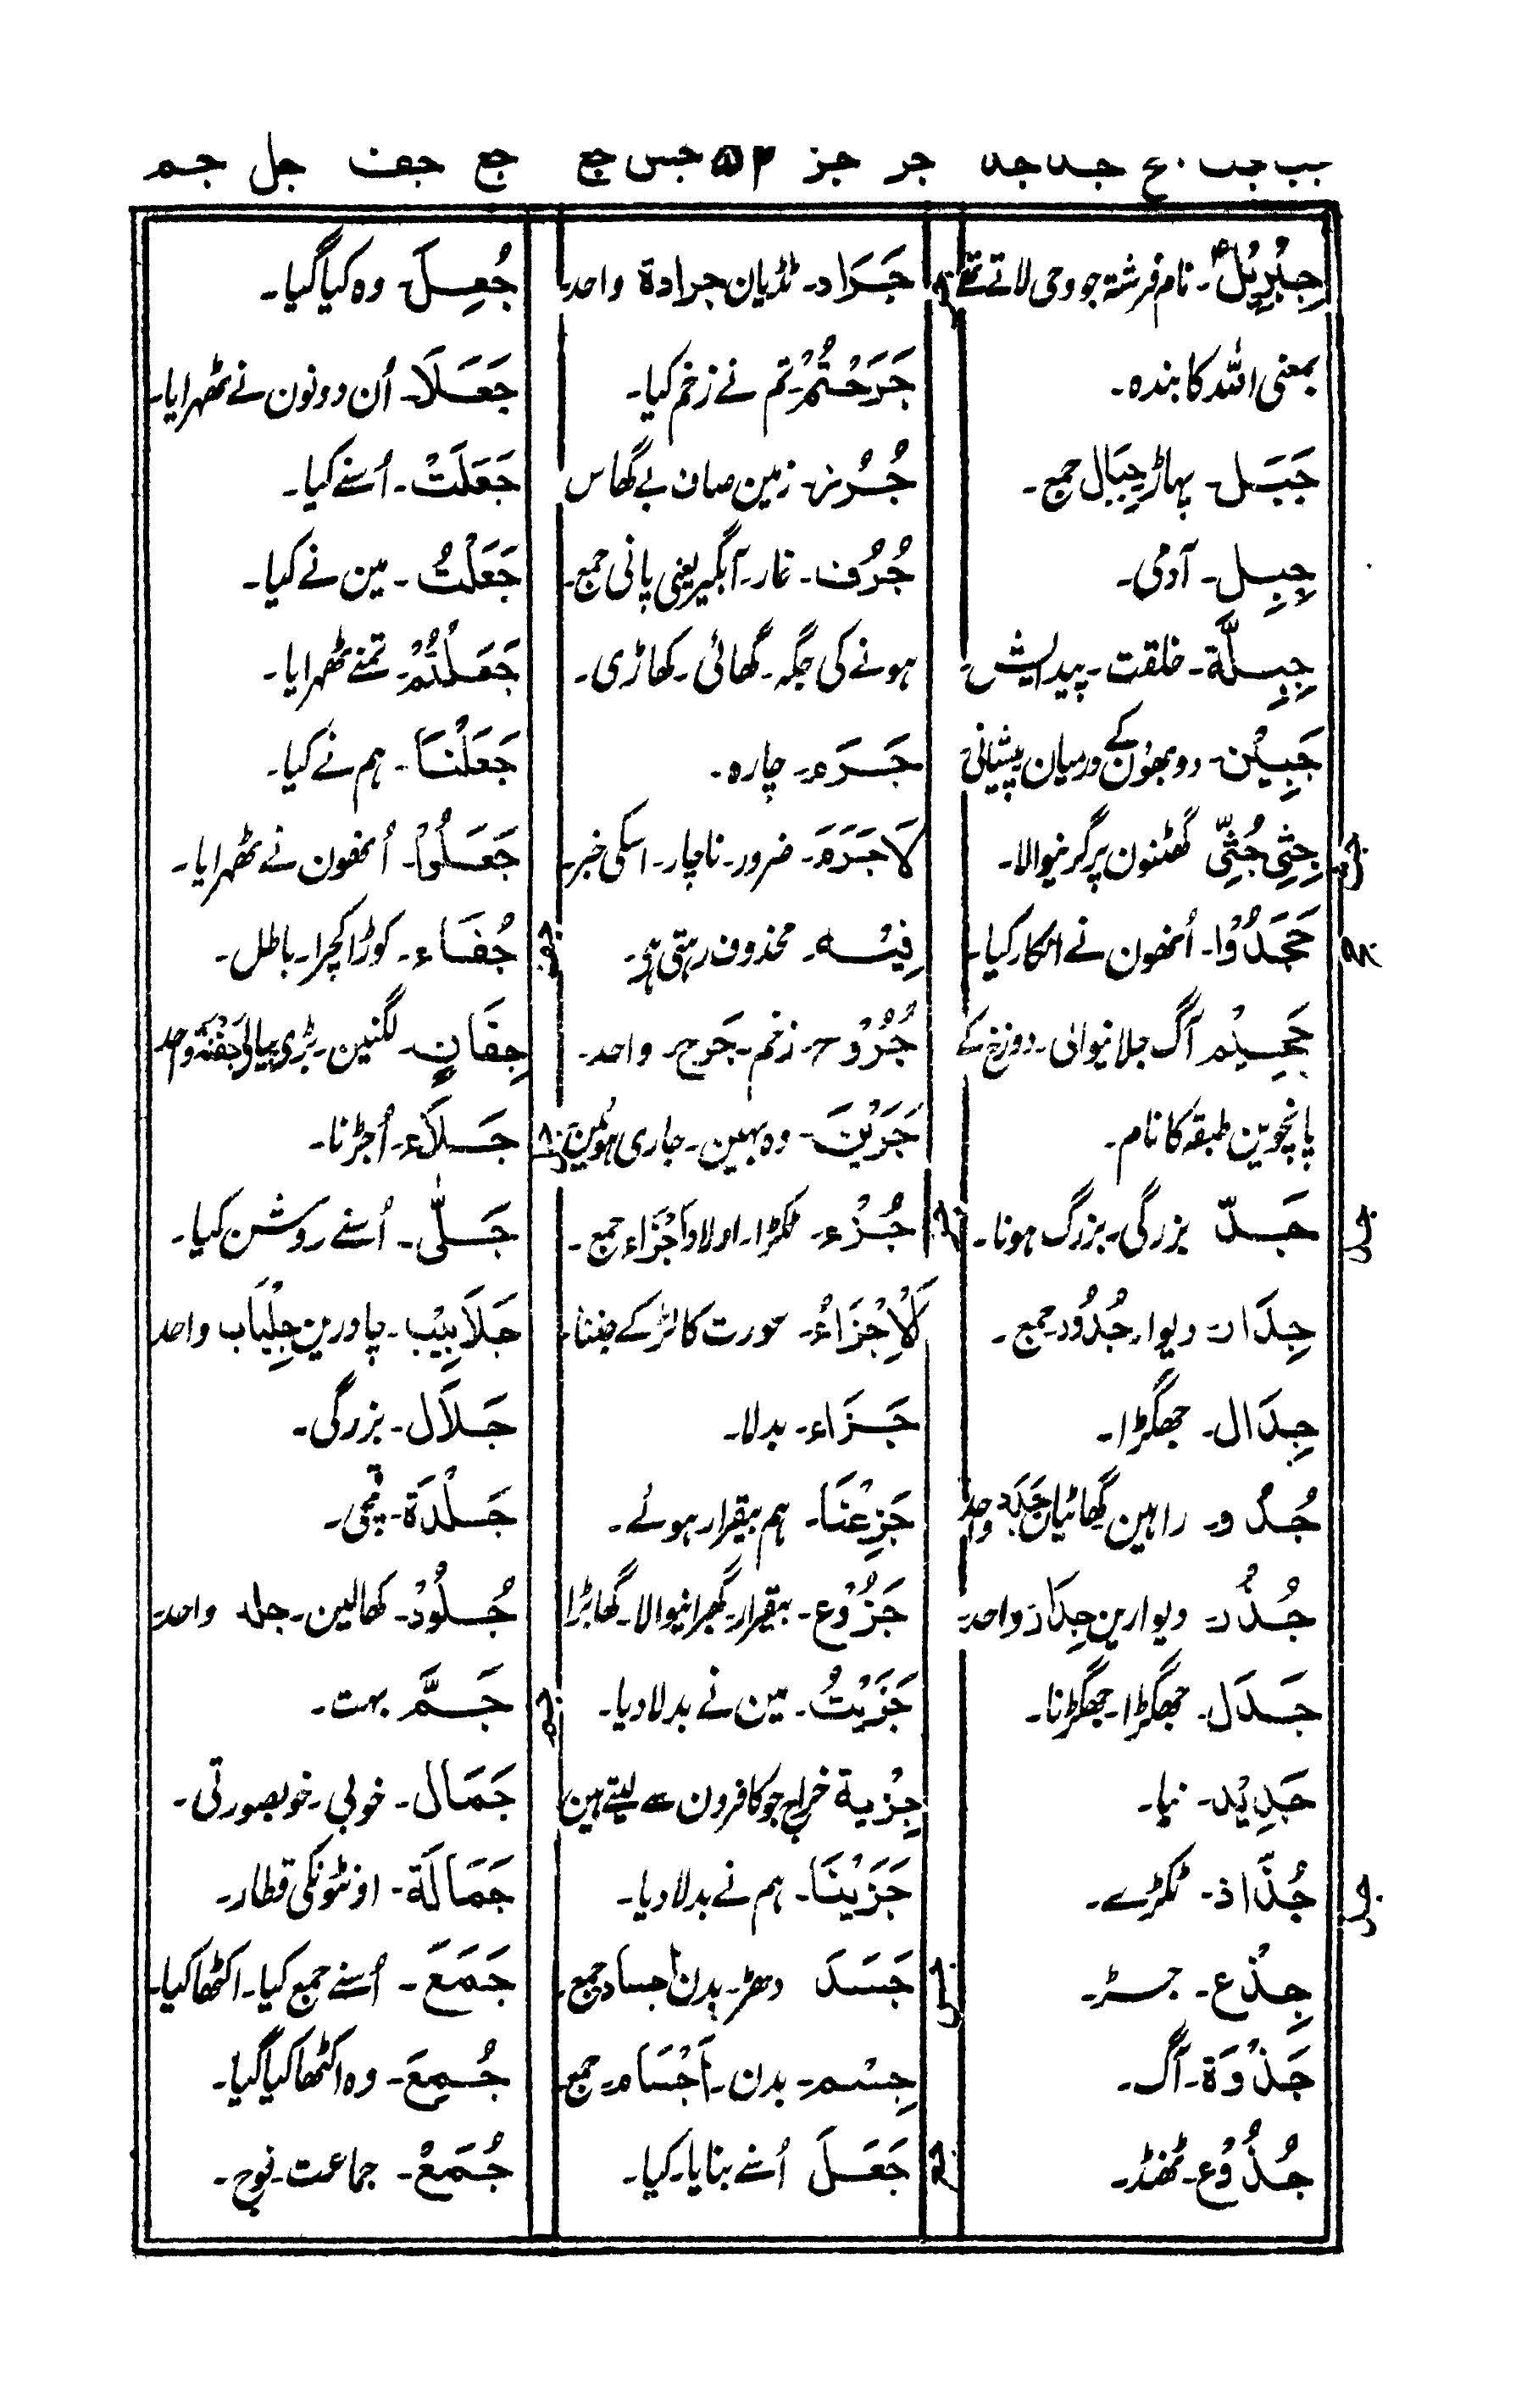 جب جث جح جد جذ جر جز ۵۲ جس جع جع جف جل جم
جِبْرِیْلُ۔ نام فرشتہ جو وحی لاتے تھے
بمعنی اللہ کا بندہ۔
جَبَل۔ پہاڑ جِبَال جمع۔
جِبِلّ۔ آدمی۔
جِبِلَّة۔ خلقت۔ پیدایش۔
جَبِیْن۔ دو بھوُن کے درمیان پیشانی
جِثِی جُثِیّ گھٹنون پر گرنیوالا۔
جَحَدُوْا۔ اُنھون نے انکار کیا۔
جَحِیْم آگ جلانیوالی۔ دوزخ کے
پانچوین طبقہ کا نام۔
جَدّ بزرگی۔ بزرگ ہونا۔
جِدَار۔ دیوار۔ جُدُود۔ جمع۔
جِدَال۔ جھگڑا۔
جُدُو۔ راہین گھاٹیان جَدَد واحد
جُدُر۔ دیوارین جِدَار واحد
جَدَل۔ جھگڑا۔ جھگڑنا۔
جَدِیْد۔ نیا۔
جُذَّاذ۔ ٹکڑے۔
جِذْع۔ جڑ۔
جَذْوَة۔ آگ۔
جُذُوْع۔ ٹھنڈ۔
جر
جَرَاد۔ ٹڈیان جرادة واحد
جَرَحْتُمْ۔ تم نے زخم کیا۔
جُرُز۔ زمین صاف بے گھاس
جُرُف۔ غار۔ آبگیر یعنی پانی جمع
ہونے کی جگہ۔ گھاٹی۔ کھاڑی۔
جَرَم۔ چارہ۔
لَاجَرَمَ۔ ضرور۔ ناچار۔ اسکی خبر
فِیْہ۔ محذوف رہتی ہی۔
جُرُوْح۔ زخم۔ جَرح۔ واحد۔
جَرَیْنَ۔ وہ بہین۔ جاری ہوئین
جز
جُزْء۔ ٹکڑا۔ اولاد اَجْزَاء جمع۔
لَاِجْزَاءُ۔ عورت کا لڑکے جننا۔
جَزَاء۔ بدلا۔
جَزِعْنَا۔ ہم بیقرار ہوئے۔
جَزُوْع۔ بیقرار۔ گھبرانیوالا۔ گھابڑا
جَزَیْتُ۔ مین نے بدلا دیا۔
جِزْیة خراج جو کافرون سے لیتے ہین
جَزَیْنَا۔ ہم نے بدلا دیا۔
جس
جَسَدَ دھڑ۔ بدن اجساد جمع۔
جِسْم۔ بدن۔ اَجْسَام۔ جمع
جع
جَعَلَ اُسنے بنایا۔ کیا۔
جُعِلَ۔ وہ کیا گیا۔
جَعَلَا۔ اُن دونون نے ٹھہرایا۔
جَعَلَتْ۔ اُسنے کیا۔
جَعَلْتُ۔ مین نے کیا۔
جَعَلْتُمْ۔ تمنے ٹھہرایا۔
جَعَلْنَا۔ ہم نے کیا۔
جَعَلُوْا۔ اُنھون نے ٹھہرایا۔
جف
جُفَاء۔ کوڑا کچرا۔ باطل۔
جِفَانٍ۔ لگنین۔ بڑی پیالی جَفْنَة واحد
جل
جَلَاء۔ اُجڑنا۔
جَلّٰی۔ اُسنے روشن کیا۔
جَلَابِیْب۔ چادرین جِلْبَاب واحد
جَلَال۔ بزرگی۔
جَلْدَة۔ قمچی۔
جُلُوْد۔ کھالین۔ جلد واحد۔
جم
جَمَّ بہت۔
جَمَال۔ خوبی۔ خوبصورتی۔
جَمَالَة۔ اونٹونکی قطار۔
جَمَعَ۔ اُسنے جمع کیا۔ اکٹھا کیا۔
جُمِعَ۔ وہ اکٹھا کیا گیا۔
جُمَعْ۔ جماعت۔ فوج۔